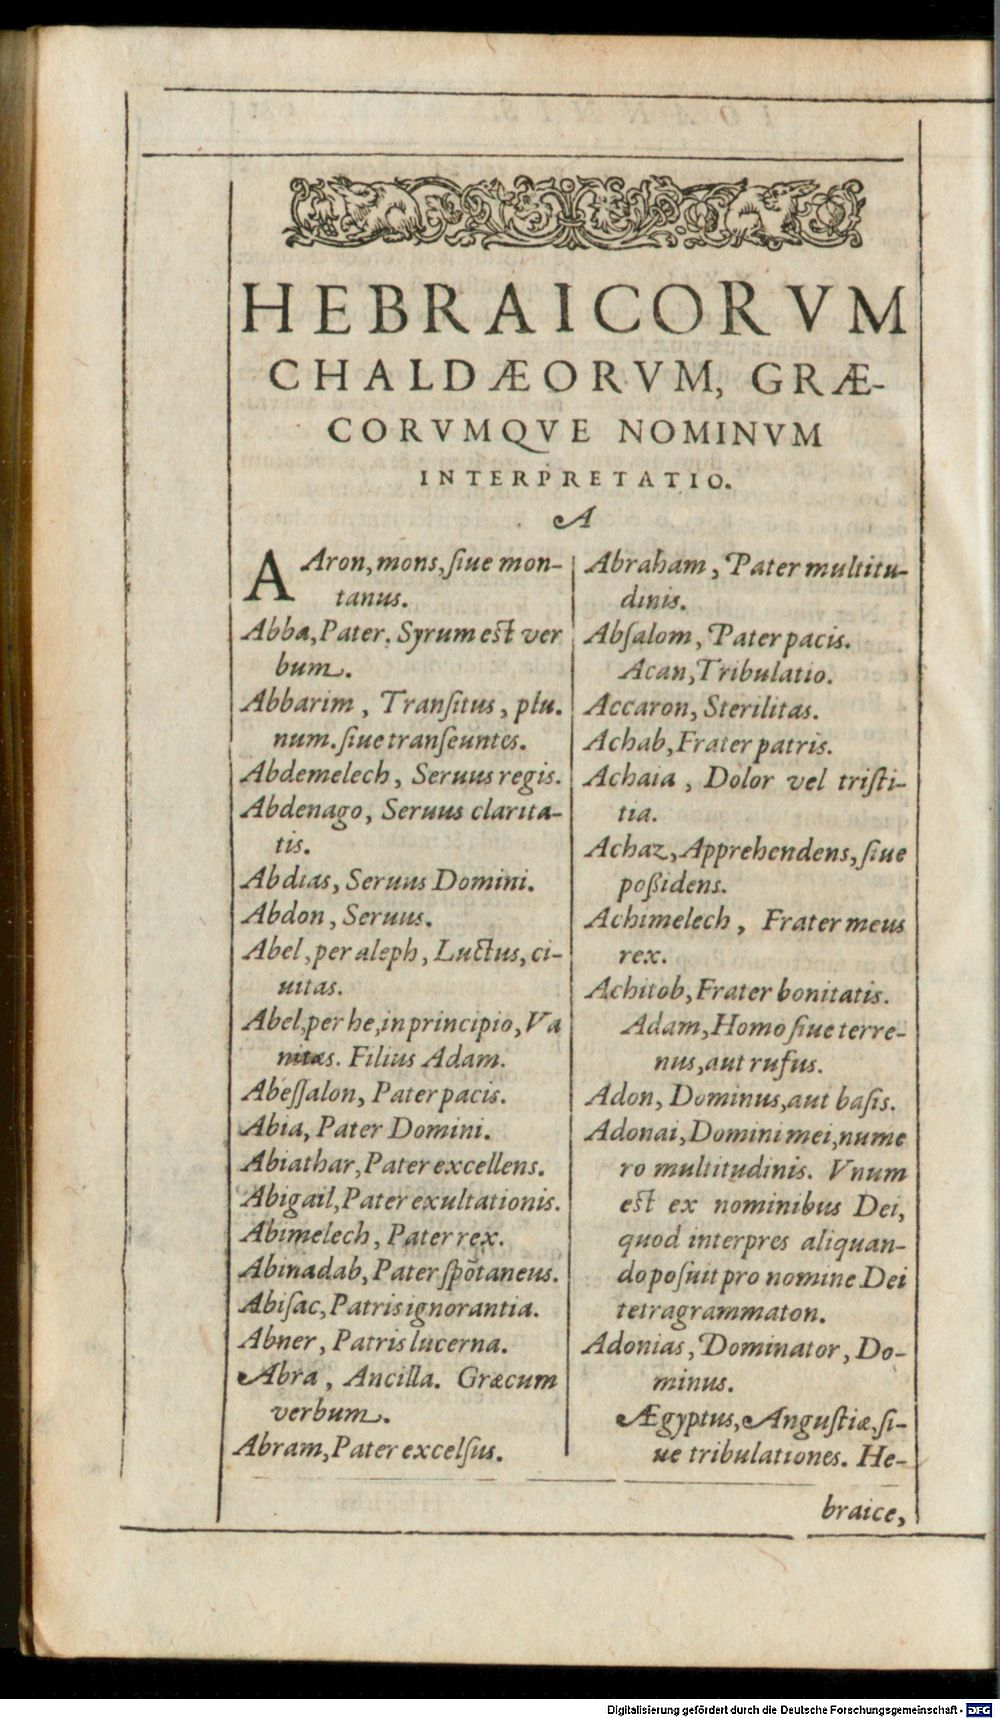 HEBRAICORVM
CHALDÆORVM, GRÆ-
CORVMQVE NOMINVM
INTERPRETATIO.
A
AAron, mons, ſiue mon-
tanus.
Abba, Pater. Syrum est ver
bum.
Abbarim, Tranſitus, plu.
num. ſiue tranſeuntes.
Abdemelech, Seruus regis.
Abdenago, Seruus clarita-
tis.
Abdias, Seruus Domini.
Abdon, Seruus.
Abel, per aleph, Luctus, ci-
uitas.
Abel, per he, in principio, Va
nitas. Filius Adam.
Abeſſalon, Pater pacis.
Abia, Pater Domini.
Abiathar, Pater excellens.
Abigail, Pater exultationis.
Abimelech, Pater rex.
Abinadab, Pater ſpōtaneus.
Abiſac, Patris ignorantia.
Abner, Patris lucerna.
Abra, Ancilla. Græcum
verbum.
Abram, Pater excelſus.
Abraham, Pater multitu-
dinis.
Abſalom, Pater pacis.
Acan, Tribulatio.
Accaron, Sterilitas.
Achab, Frater patris.
Achaia, Dolor vel triſti-
tia.
Achaz, Apprehendens, ſiue
poßidens.
Achimelech, Frater meus
rex.
Achitob, Frater bonitatis.
Adam, Homo ſiue terre-
nus, aut rufus.
Adon, Dominus, aut baſis.
Adonai, Domini mei, nume
ro multitudinis. Vnum
est ex nominibus Dei,
quod interpres aliquan-
do poſuit pro nomine Dei
tetragrammaton.
Adonias, Dominator, Do-
minus.
Ægyptus, Anguſtiæ, ſi-
ue tribulationes. He-
braice,
Digitalisierung gefördert durch die Deutsche Forschungsgemeinschaft - DFG